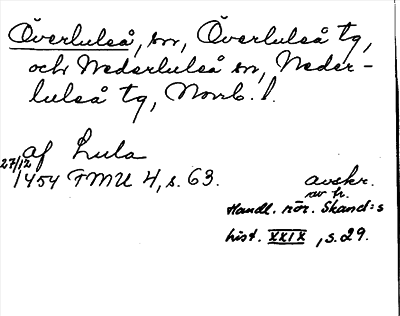 Överluleå, sn, Överluleå tg,
och Nederluleå sn, Neder-
luleå tg, Norrb. l.
af Lula
27/12
1454 FMU 4, s. 63.
avskr.
av fr.
Handl. rör. Skand:s
hist. XXIX, s. 29.